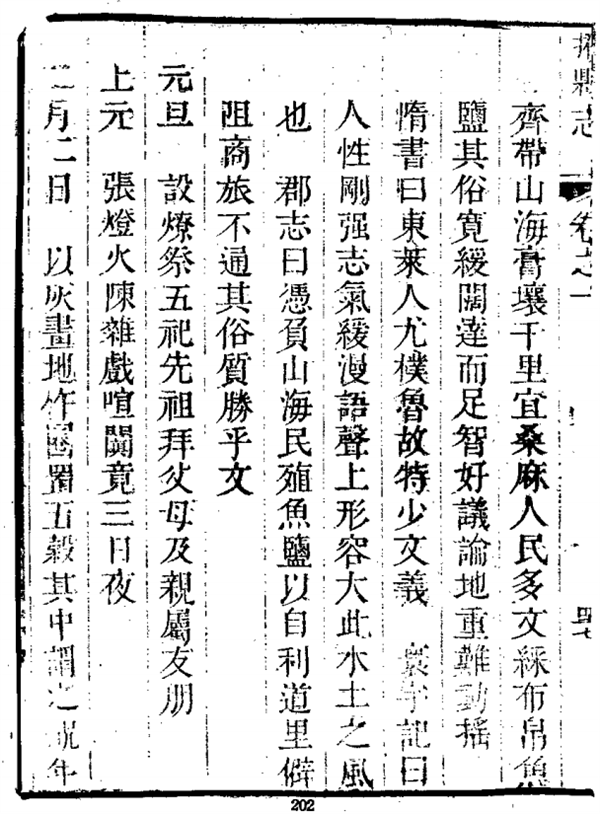 志 卷之一
齊帶山海膏壤千里宜桑麻人民多文綵布帛魚
鹽其俗寬緩闊達而足智好議論地重難動搖
惰書曰東萊人尤樸魯故特少文義 寰宇記曰
人性剛强志氣緩漫語聲上形容大此水土之風
也 郡志曰憑負山海民殖魚鹽以自利道里僻
阻商旅不通其俗質勝乎文
元旦 設燎祭五祀先祖拜父母及親屬友朋
上元 張燈火陳雜戲喧闐竟三日夜
二月二日 以灰畫地作囷置五穀其中謂之祝年
202